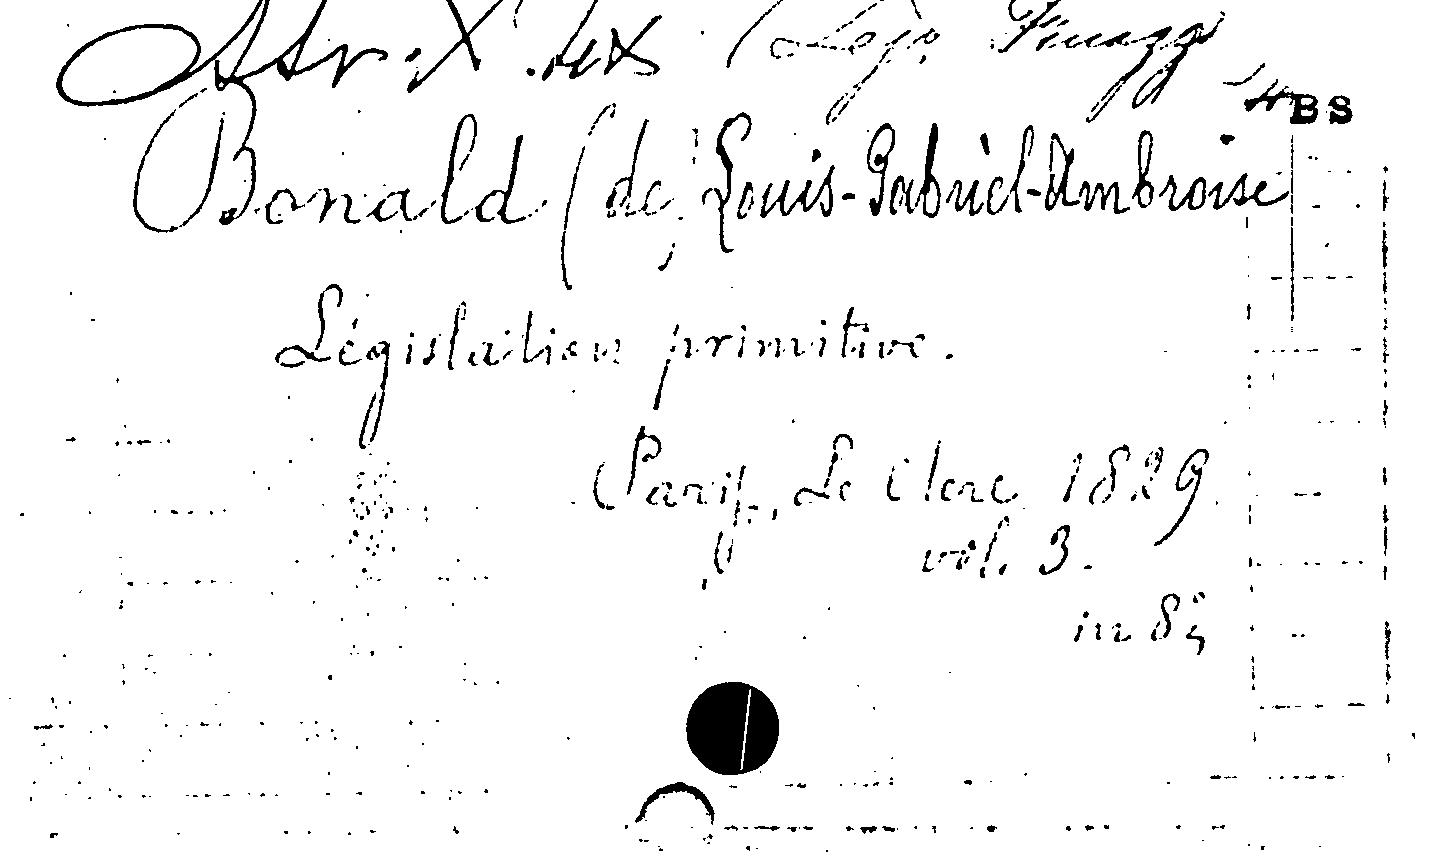 Str. X. 48 (Lejo Finazzi
BS
Bonald (de, Louis-Gabriel-Ambroise
Législation primitive.
Paris, Le Clere 1829
vol. 3.
in 8°;